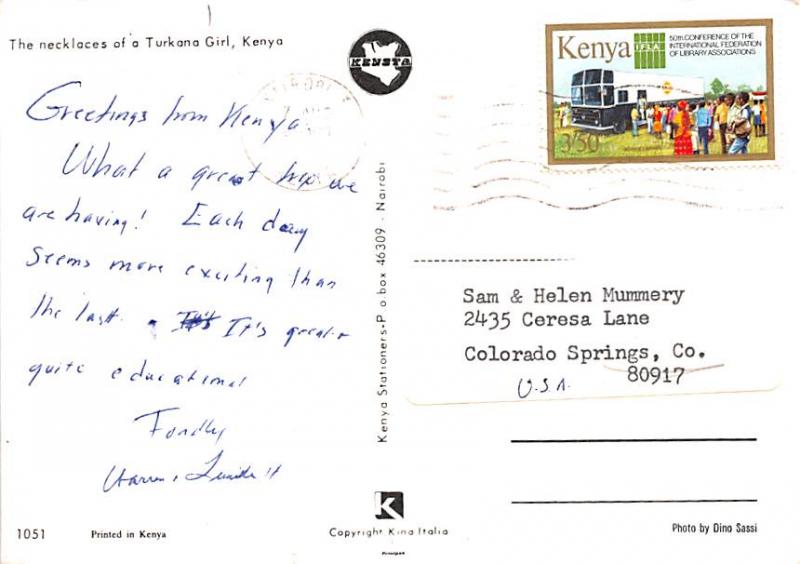 The necklaces of a Turkana Girl, Kenya
Greetings from Kenya.
What a great trip we
are having! Each day
seems more exciting than
the last. It's It's great &
quite educational
Fondly
Warren &
KENSTA
Kenya Stationers-P o box 46309 - Nairobi
Kenya
IFLA
50th CONFERENCE OF THE
INTERNATIONAL FEDERATION
OF LIBRARY ASSOCIATIONS
3/50
NAIROBI
Sam & Helen Mummery
2435 Ceresa Lane
Colorado Springs, Co.
80917
U.S.A.
1051
Printed in Kenya
K
Copyright Kina Italia
Photo by Dino Sassi